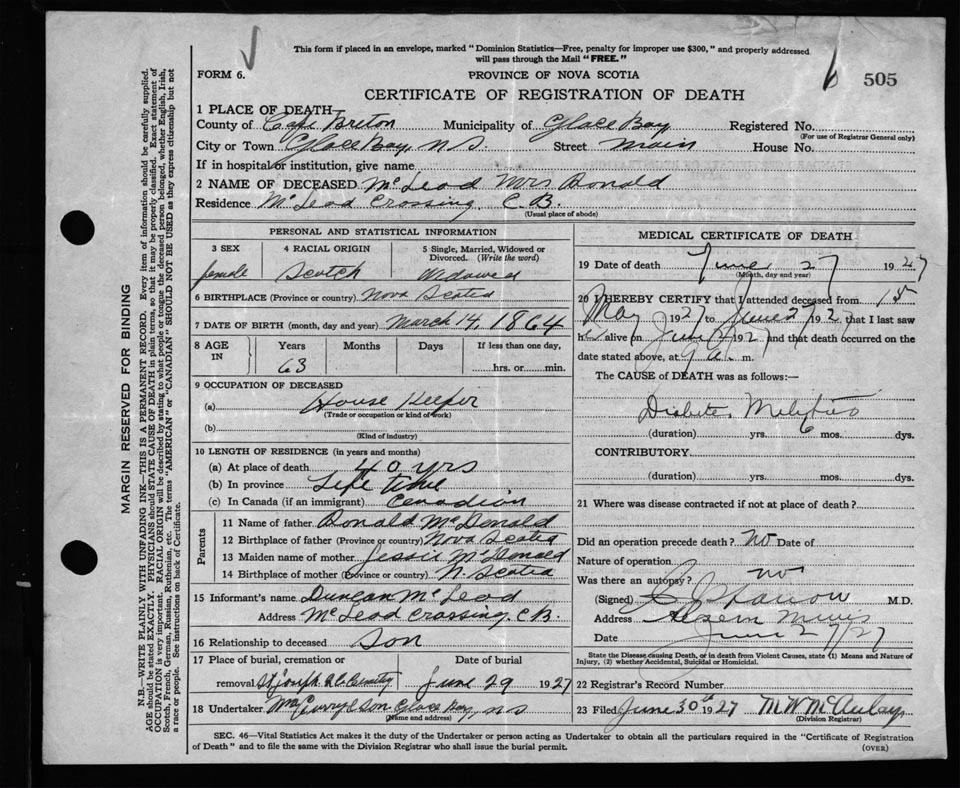 This form if placed in an envelope, marked "Dominion Statistics—Free, penalty for improper use $300," and properly addressed
will pass through the Mail "FREE."
FORM 6. PROVINCE OF NOVA SCOTIA 505
CERTIFICATE OF REGISTRATION OF DEATH
1 PLACE OF DEATH
County of Cape Breton Municipality of Glace Bay Registered No.
(For use of Registrar General only)
City or Town Glace Bay, N.S. Street Main House No.
If in hospital or institution, give name
2 NAME OF DECEASED McLeod Mrs Donald
Residence McLeod Crossing C.B.
(Usual place of abode)
PERSONAL AND STATISTICAL INFORMATION
3 SEX 4 RACIAL ORIGIN 5 Single, Married, Widowed or
Divorced. (Write the word)
female Scotch Widowed
6 BIRTHPLACE (Province or country) Nova Scotia
7 DATE OF BIRTH (month, day and year) March 14, 1864
8 AGE IN Years Months Days If less than one day,
63 hrs. or min.
9 OCCUPATION OF DECEASED
(a) House Keeper
(Trade or occupation or kind of work)
(b)
(Kind of industry)
10 LENGTH OF RESIDENCE (in years and months)
(a) At place of death 40 yrs
(b) In province Life time
(c) In Canada (if an immigrant) Canadian
Parents
11 Name of father Donald McDonald
12 Birthplace of father (Province or country) Nova Scotia
13 Maiden name of mother Jessie McDonald
14 Birthplace of mother (Province or country) N. Scotia
15 Informant's name Duncan McLeod
Address McLeod Crossing. C.B.
16 Relationship to deceased Son
17 Place of burial, cremation or Date of burial
removal St Joseph R.C. Cemetery June 29 1927
18 Undertaker MacCurry & Son Glace Bay, N S
(Name and address)
MEDICAL CERTIFICATE OF DEATH
19 Date of death June 27 1927
(Month, day and year)
20 I HEREBY CERTIFY that I attended deceased from 15
May 1927 to June 27 1927 that I last saw
h alive on June 1927 and that death occurred on the
date stated above, at 9 a. m.
The CAUSE of DEATH was as follows:
Diabetes Melitus
(duration) yrs. 6 mos. dys.
CONTRIBUTORY
(duration) yrs. mos. dys.
21 Where was disease contracted if not at place of death?
Did an operation precede death? no Date of
Nature of operation
Was there an autopsy? no
(Signed) M.D.
Address
Date June 27/27
State the Disease causing Death, or in death from Violent Causes, state (1) Means and Nature of
Injury, (2) whether Accidental, Suicidal or Homicidal.
22 Registrar's Record Number
23 Filed June 30th 1927 M W McAulay
(Division Registrar)
SEC. 46—Vital Statistics Act makes it the duty of the Undertaker or person acting as Undertaker to obtain all the particulars required in the "Certificate of Registration
of Death" and to file the same with the Division Registrar who shall issue the burial permit.
(OVER)
MARGIN RESERVED FOR BINDING
N.B.—WRITE PLAINLY WITH UNFADING INK—THIS IS A PERMANENT RECORD. Every item of information should be carefully supplied.
AGE should be stated EXACTLY. PHYSICIANS should STATE CAUSE OF DEATH in plain terms, so that it may be properly classified. Exact statement of
OCCUPATION is very important. RACIAL ORIGIN will be described by stating to what people or tongue the deceased person belonged, whether English, Irish,
Scotch, French, German, Russian, Ruthenian, etc. The terms "AMERICAN" or "CANADIAN" SHOULD NOT BE USED as they express citizenship but not
a race or people. See instructions on back of Certificate.